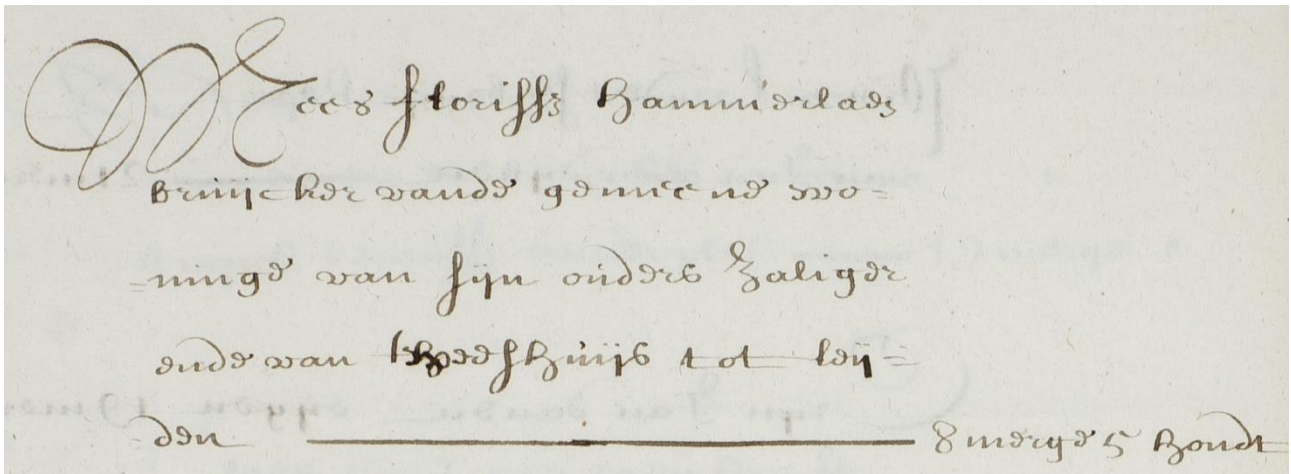 Kees florissz hammerlaen
bruijcker vande gemeene wo=
=ninge van sijn ouders zaliger
ende van tweeshuijs tot leij=
=den 8 merge 5 hondt